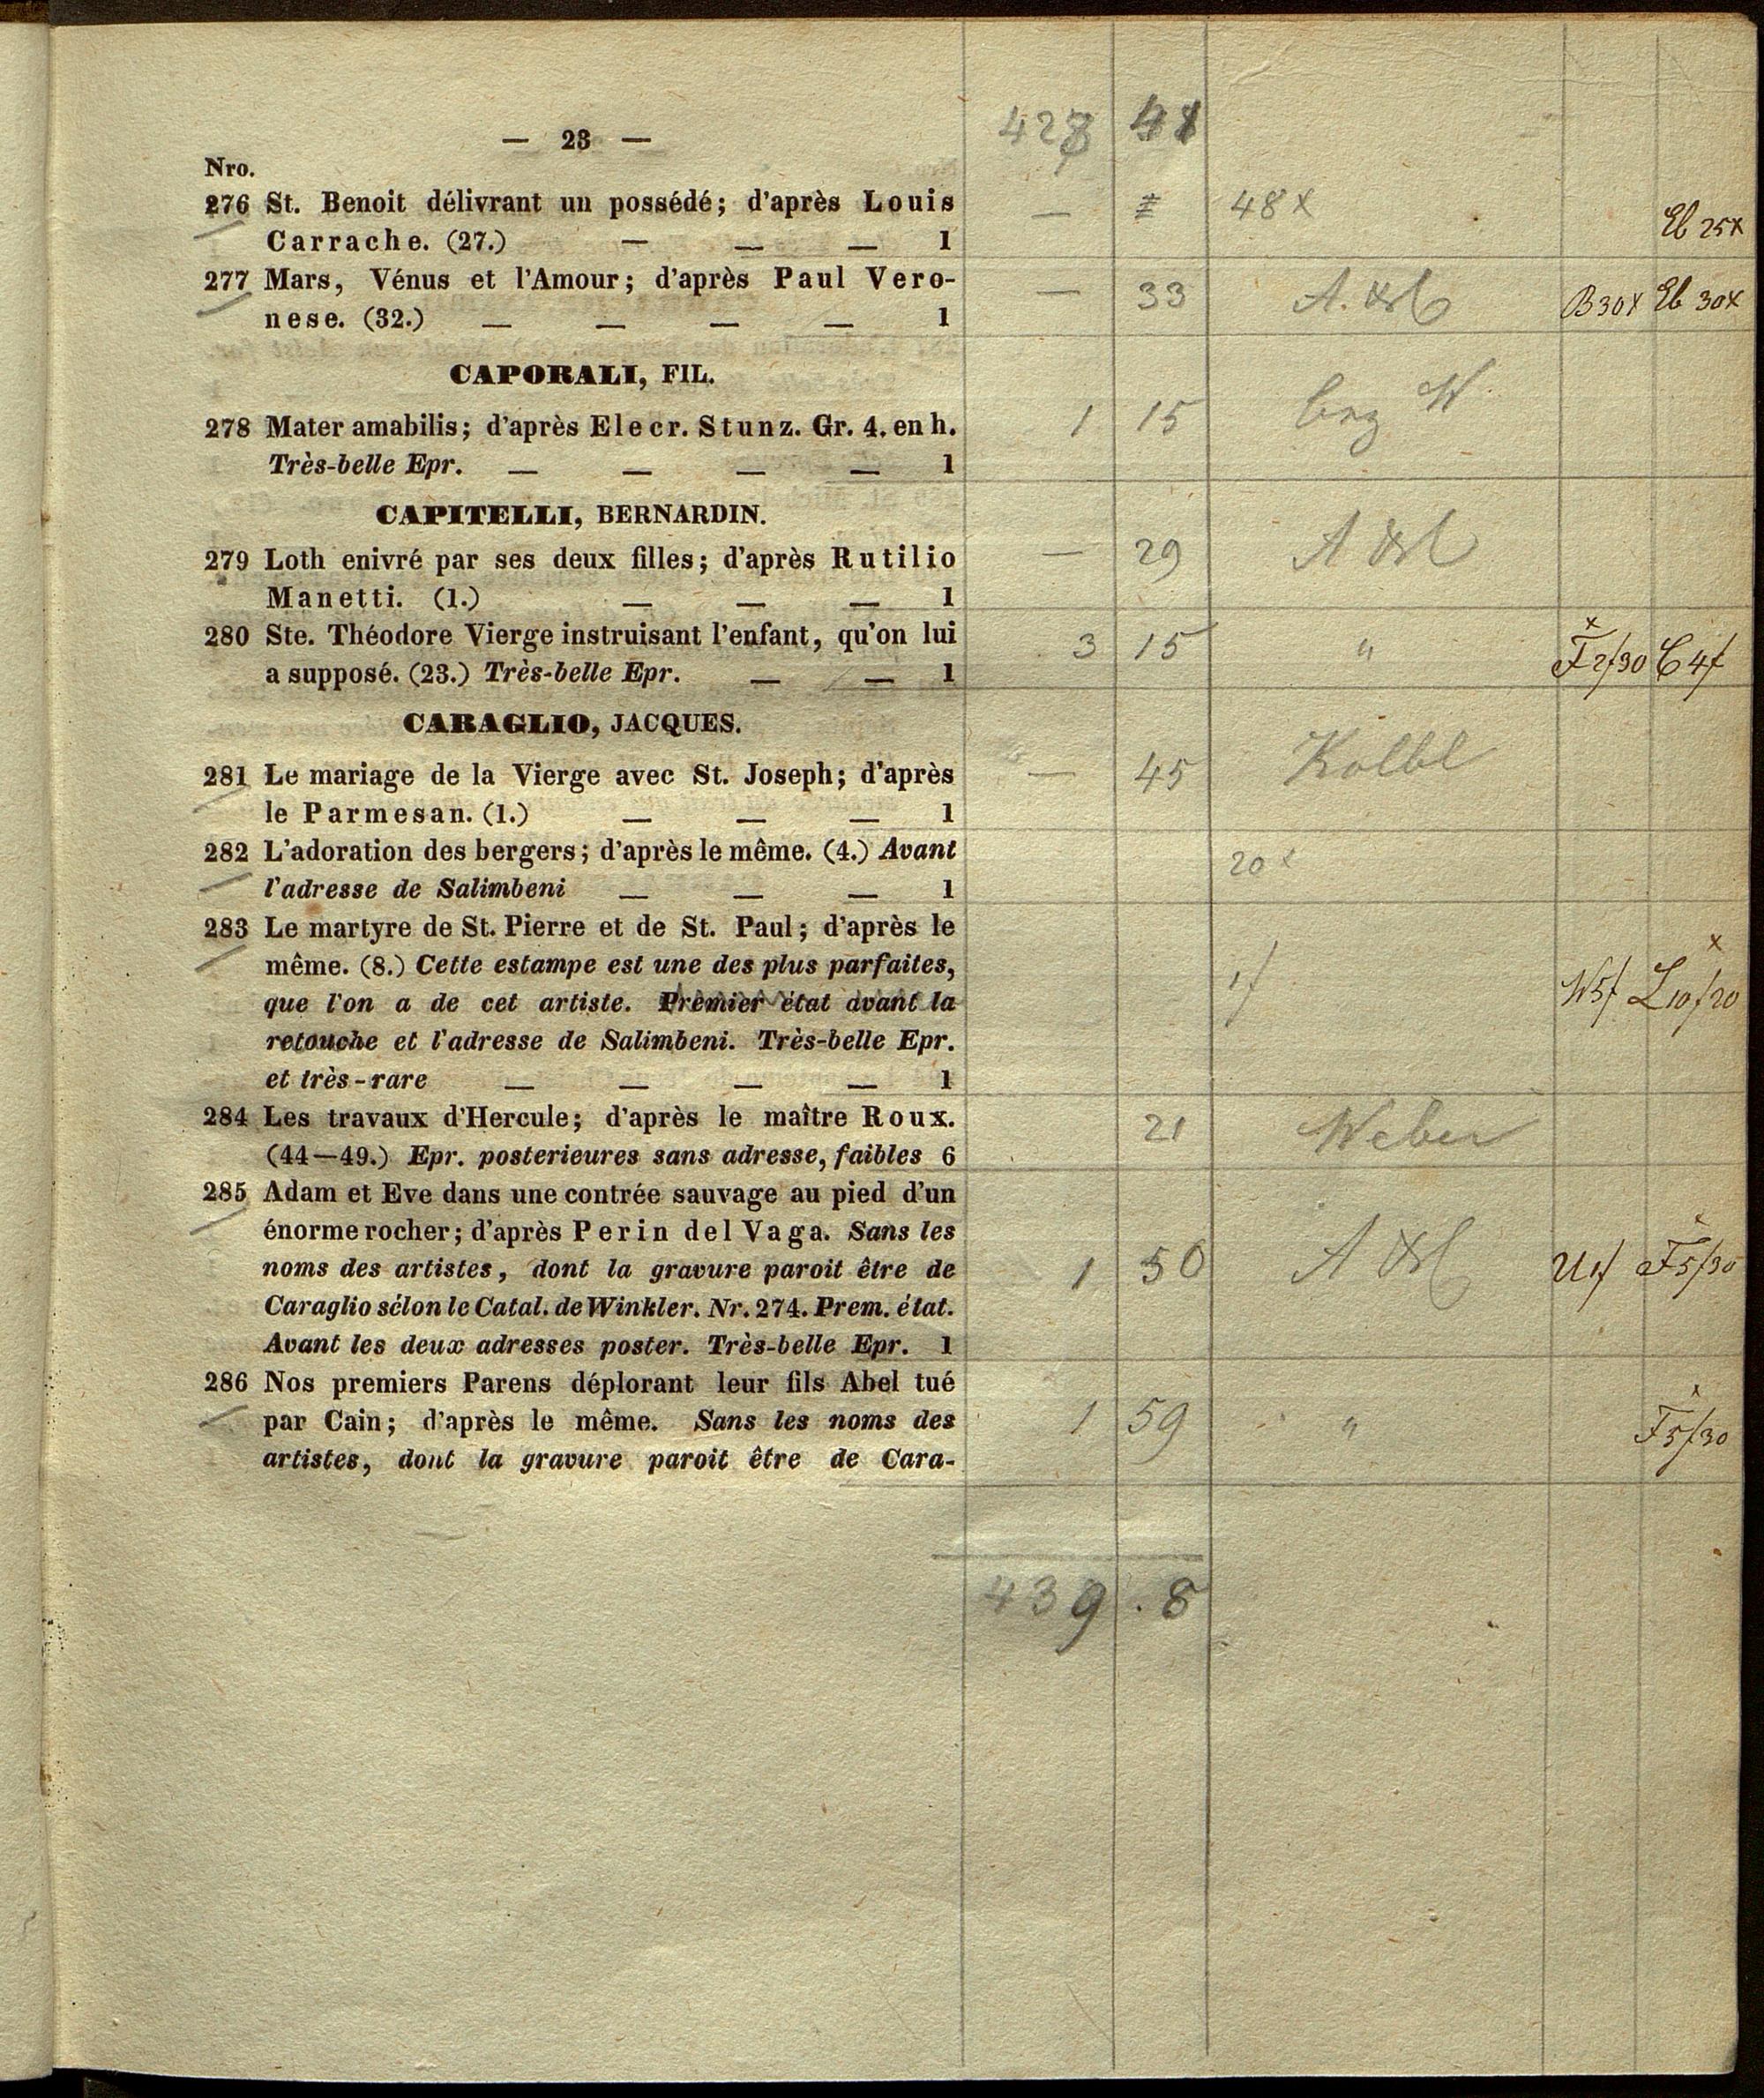 — 23 —
48
Nro.
276 St. Benoit délivrant un possédé; d'après Louis — 48 x
Carrache. (27.) — — — 1 Eb 25x
277 Mars, Vénus et l'Amour; d'après Paul Vero- — 33 B 30x Eb 30x
nese. (32.) — — — — 1
CAPORALI, FIL.
278 Mater amabilis; d'après Elecr. Stunz. Gr. 4. en h. 1 15 W
Très-belle Epr. — — — — 1
CAPITELLI, BERNARDIN.
279 Loth enivré par ses deux filles; d'après Rutilio — 29
Manetti. (1.) — — — 1
280 Ste. Théodore Vierge instruisant l'enfant, qu'on lui 3 15 " F 2f30 C 4f
a supposé. (23.) Très-belle Epr. — — 1
CARAGLIO, JACQUES.
281 Le mariage de la Vierge avec St. Joseph; d'après — 45 Kolbl
le Parmesan. (1.) — — — 1
282 L'adoration des bergers; d'après le même. (4.) Avant 20 x
l'adresse de Salimbeni — — — 1
283 Le martyre de St. Pierre et de St. Paul; d'après le x
même. (8.) Cette estampe est une des plus parfaites, 1f W5f L10f20
que l'on a de cet artiste. Premier état avant la
retouche et l'adresse de Salimbeni. Très-belle Epr.
et très-rare — — — — 1
284 Les travaux d'Hercule; d'après le maître Roux. 21 Weber
(44—49.) Epr. posterieures sans adresse, faibles 6
285 Adam et Eve dans une contrée sauvage au pied d'un
énorme rocher; d'après Perin del Vaga. Sans les x
noms des artistes, dont la gravure paroit être de 1 50 F5f30
Caraglio sélon le Catal. de Winkler. Nr. 274. Prem. état.
Avant les deux adresses poster. Très-belle Epr. 1
286 Nos premiers Parens déplorant leur fils Abel tué x
par Cain; d'après le même. Sans les noms des 1 59 " F5f30
artistes, dont la gravure paroit être de Cara-
439 . 8